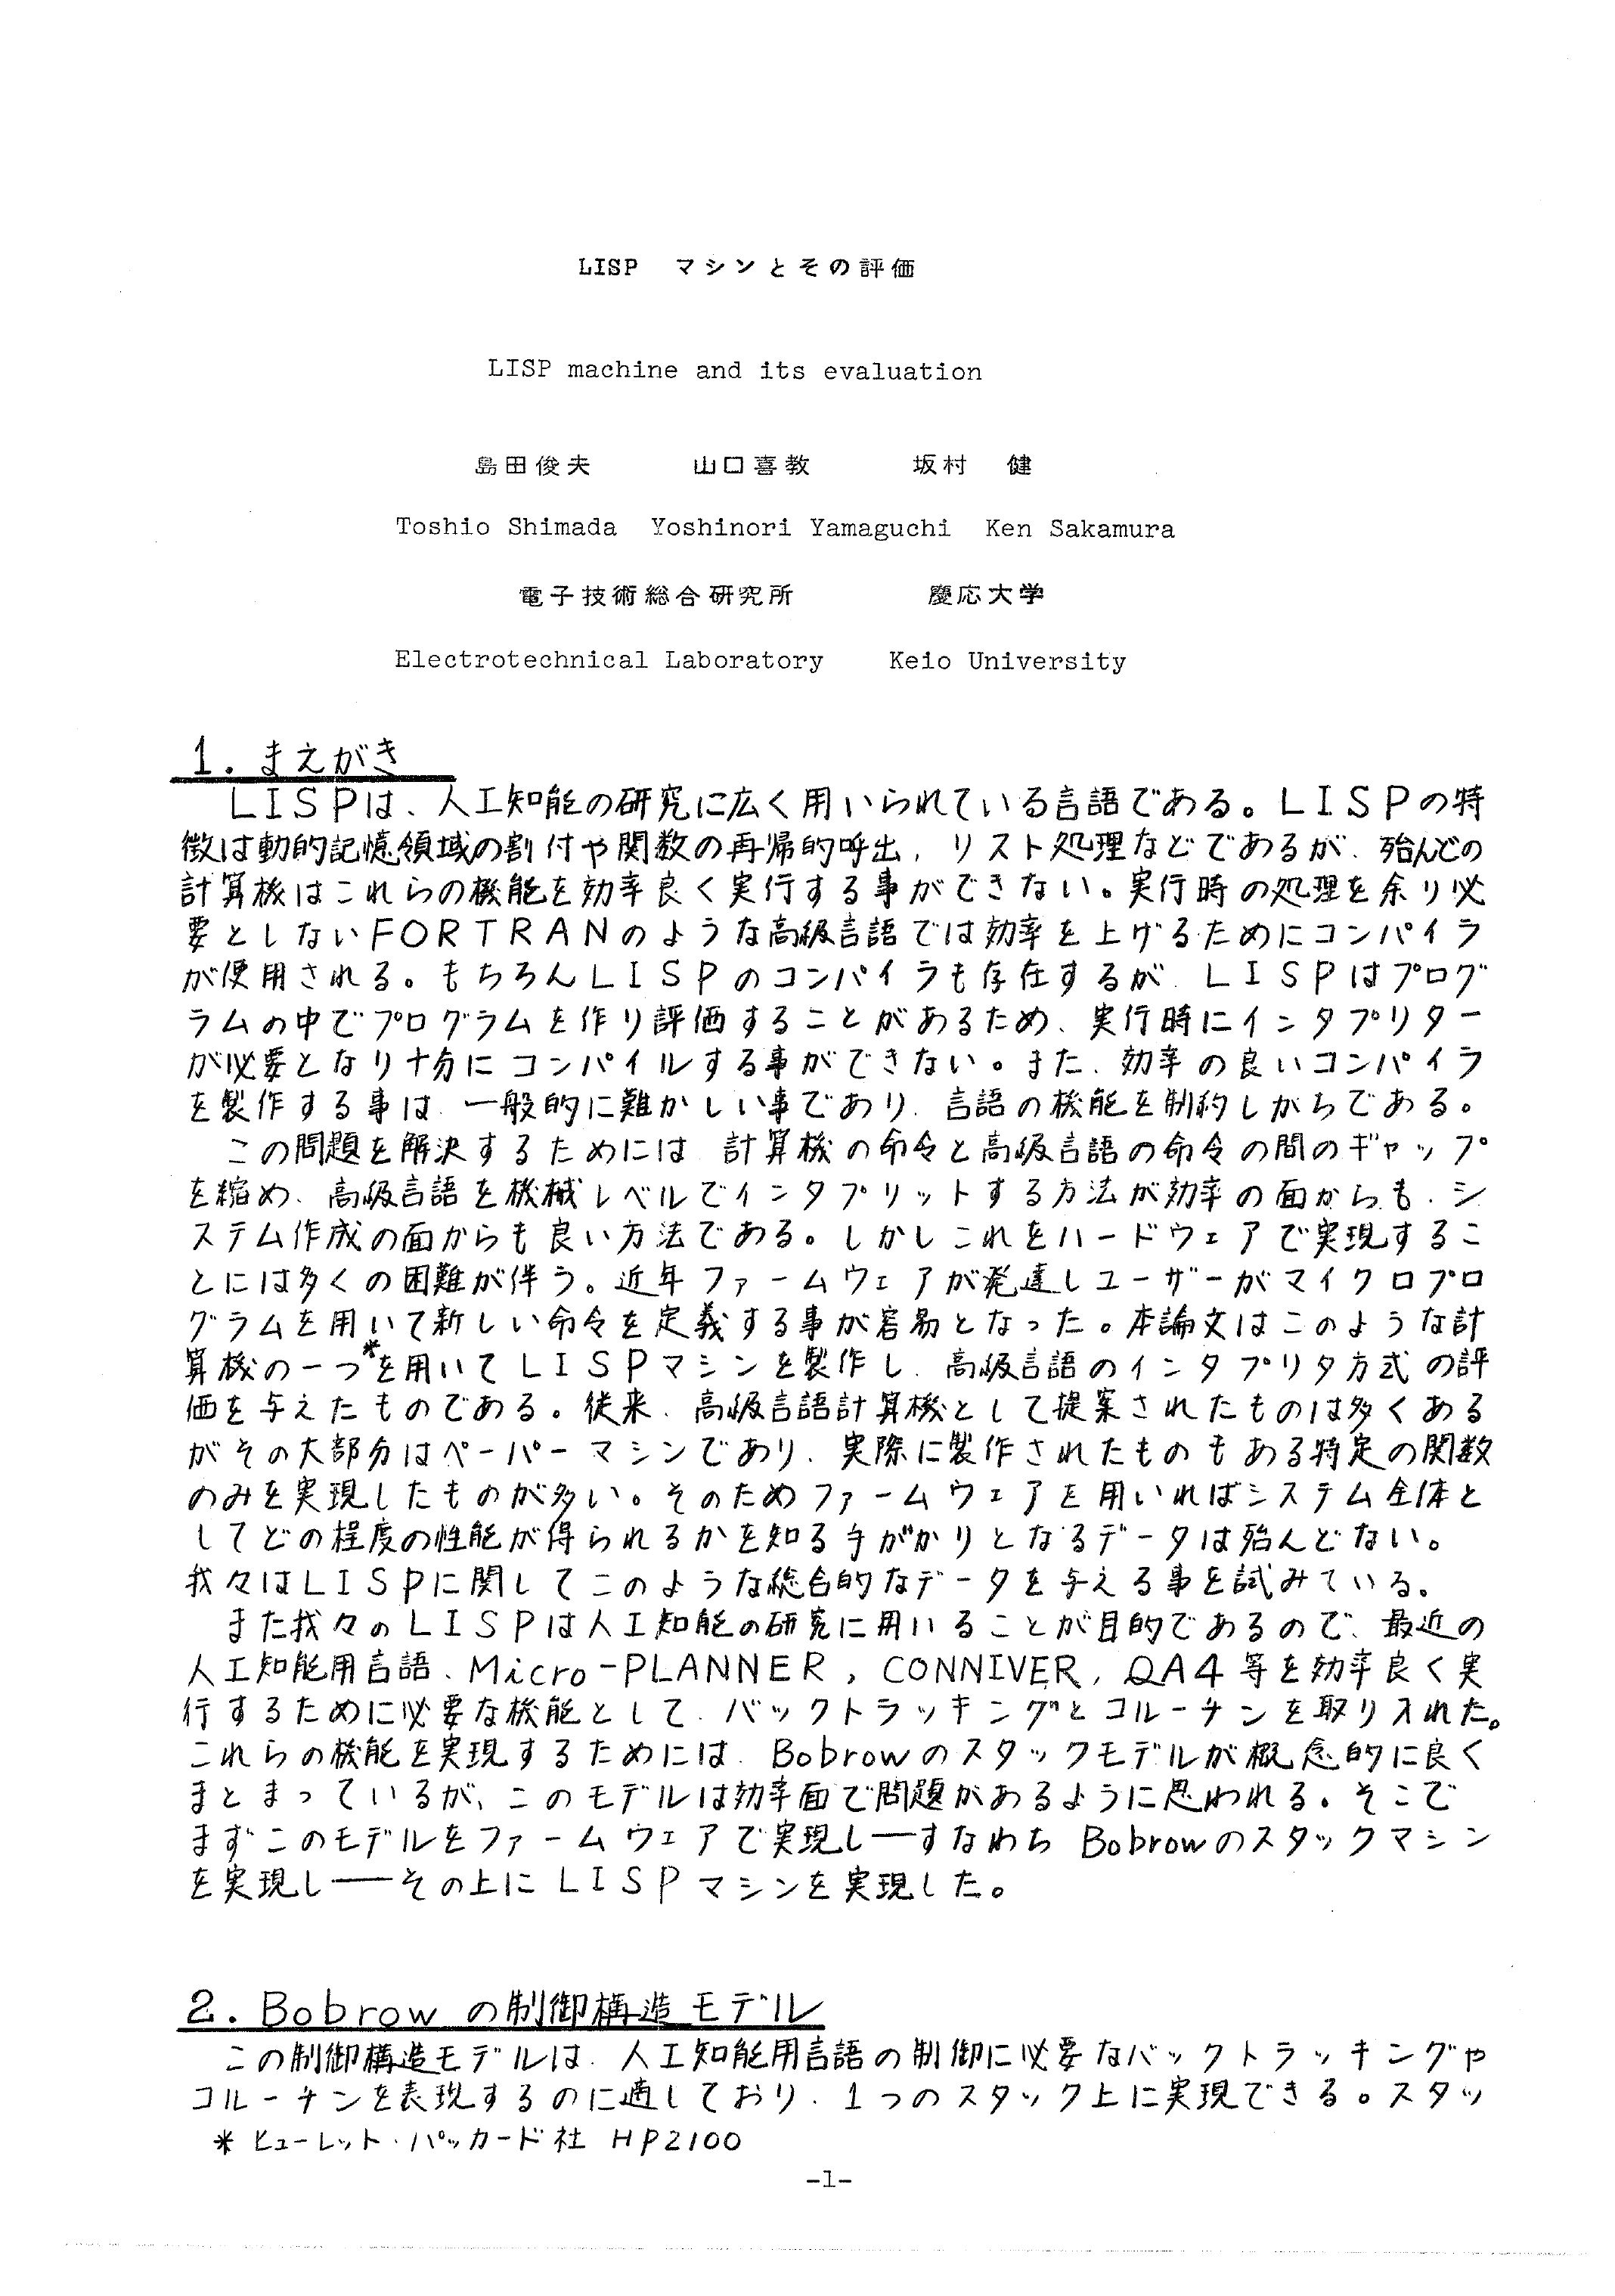 LISP マシンとその評価
LISP machine and its evaluation
島田俊夫 山口喜教 坂村 健
Toshio Shimada Yoshinori Yamaguchi Ken Sakamura
電子技術総合研究所 慶応大学
Electrotechnical Laboratory Keio University
1. まえがき
LISPは、人工知能の研究に広く用いられている言語である。LISPの特
徴は動的記憶領域の割付や関数の再帰的呼出, リスト処理などであるが、殆んどの
計算機はこれらの機能を効率良く実行する事ができない。実行時の処理を余り必
要としないFORTRANのような高級言語では効率を上げるためにコンパイラ
が使用される。もちろんLISPのコンパイラも存在するが、LISPはプログ
ラムの中でプログラムを作り評価することがあるため、実行時にインタプリター
が必要となり十分にコンパイルする事ができない。また、効率の良いコンパイラ
を製作する事は、一般的に難かしい事であり、言語の機能を制約しがちである。
この問題を解決するためには、計算機の命令と高級言語の命令の間のギャップ
を縮め、高級言語を機械レベルでインタプリットする方法が効率の面からも、シ
ステム作成の面からも良い方法である。しかしこれをハードウェアで実現するこ
とには多くの困難が伴う。近年ファームウェアが発達しユーザーがマイクロプロ
グラムを用いて新しい命令を定義する事が容易となった。本論文はこのような計
算機の一つ*を用いてLISPマシンを製作し、高級言語のインタプリタ方式の評
価を与えたものである。従来、高級言語計算機として提案されたものは多くある
がその大部分はペーパーマシンであり、実際に製作されたものもある特定の関数
のみを実現したものが多い。そのためファームウェアを用いればシステム全体と
してどの程度の性能が得られるかを知る手がかりとなるデータは殆んどない。
我々はLISPに関してこのような総合的なデータを与える事を試みている。
また我々のLISPは人工知能の研究に用いることが目的であるので、最近の
人工知能用言語、Micro-PLANNER, CONNIVER, QA4等を効率良く実
行するために必要な機能として、バックトラッキングとコルーチンを取り入れた。
これらの機能を実現するためには、Bobrowのスタックモデルが概念的に良く
まとまっているが、このモデルは効率面で問題があるように思われる。そこで
まずこのモデルをファームウェアで実現し──すなわち Bobrowのスタックマシン
を実現し──その上にLISPマシンを実現した。
2. Bobrow の制御構造モデル
この制御構造モデルは、人工知能用言語の制御に必要なバックトラッキングや
コルーチンを表現するのに適しており、1つのスタック上に実現できる。スタッ
* ヒューレット・パッカード社 HP2100
-1-